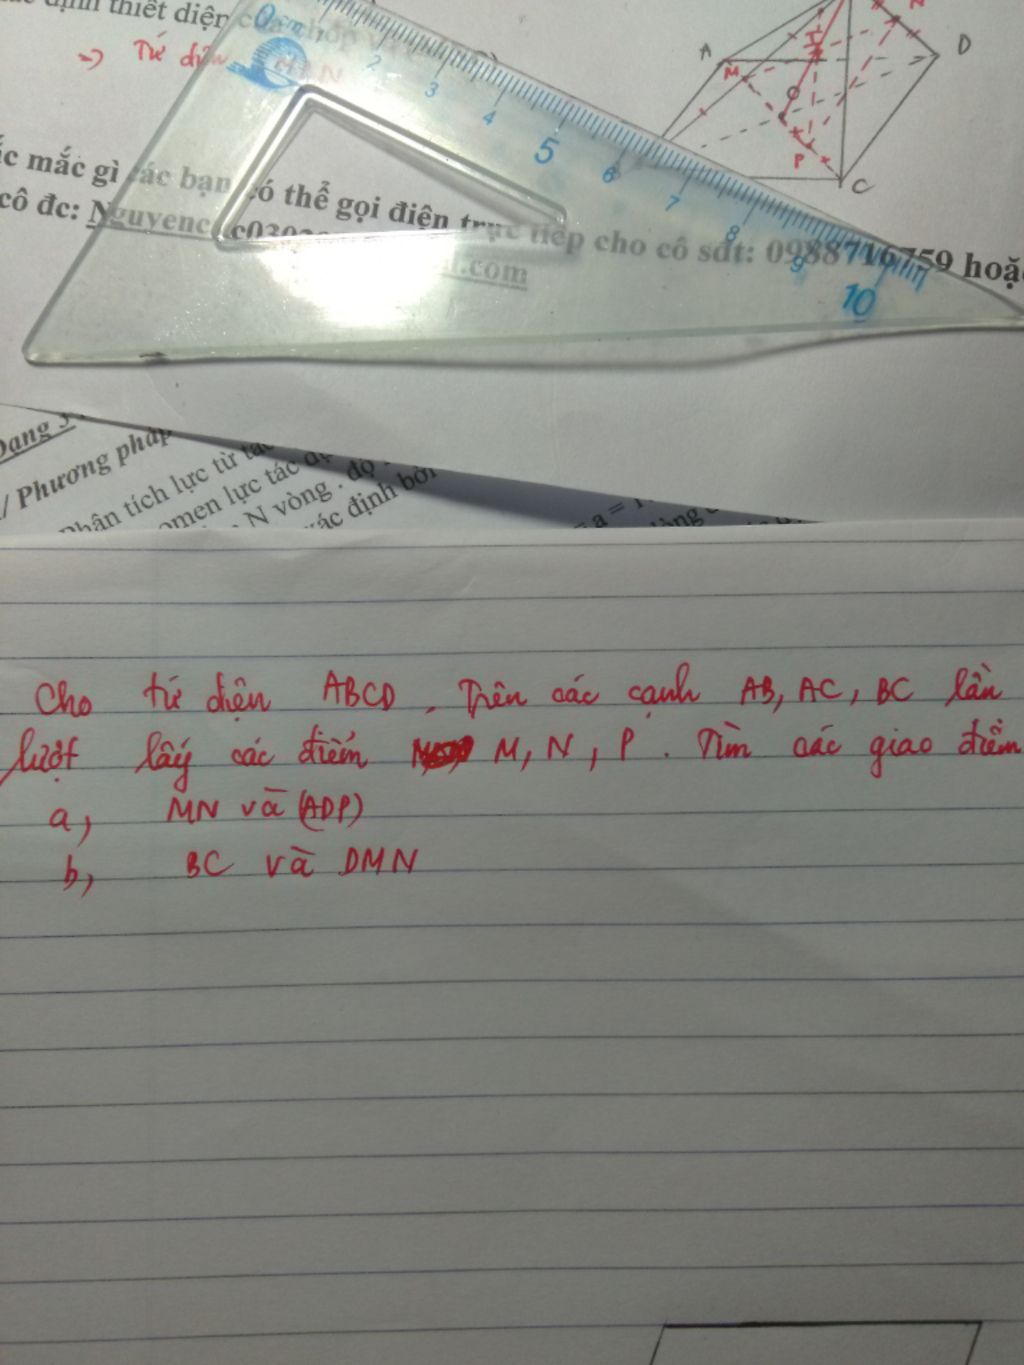 định thiết diện của chóp
=> Tứ diện MPN
A
M
N
D
I
O
P
C
0 cm 1 2 3 4 5 6 7 8 9 10
ắc mắc gì các bạn có thể gọi điện trực tiếp cho cô sđt: 0988716759 hoặc
cô đc:
.com
Dạng 3
/ Phương pháp
Phân tích lực từ tác
omen lực tác dụ
N vòng . độ
xác định bởi
Cho tứ diện ABCD. Trên các cạnh AB, AC, BC lần
lượt lấy các điểm M, N, P. Tìm các giao điểm
a, MN và (ADP)
b, BC và DMN